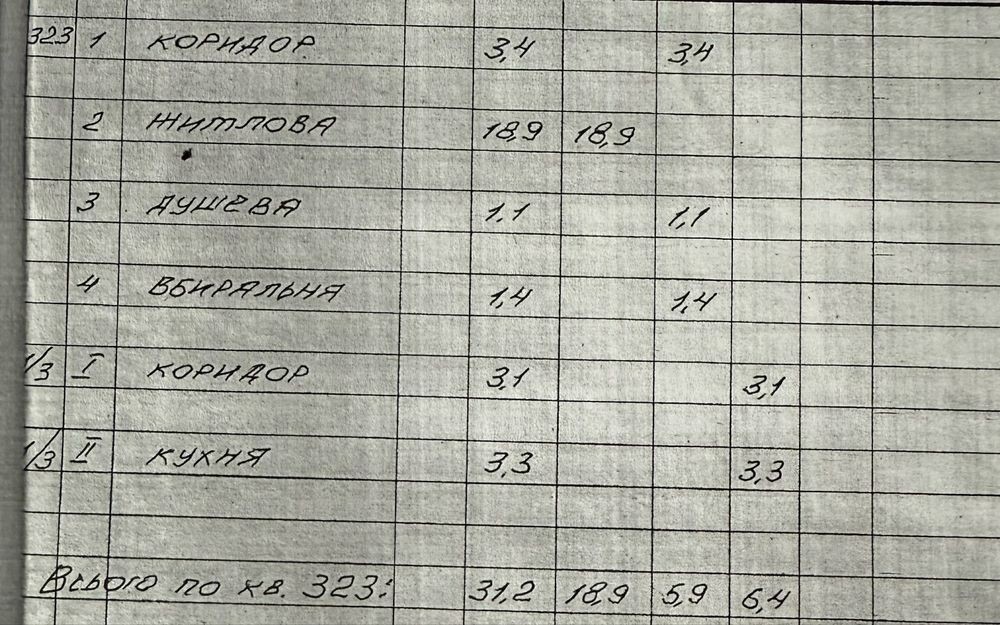 323 1 КОРИДОР 3,4 3,4
2 ЖИТЛОВА 18,9 18,9
3 ДУШЕВА 1,1 1,1
4 ВБИРАЛЬНЯ 1,4 1,4
1/3 I КОРИДОР 3,1 3,1
1/3 II КУХНЯ 3,3 3,3
Всього по кв. 323: 31,2 18,9 5,9 6,4